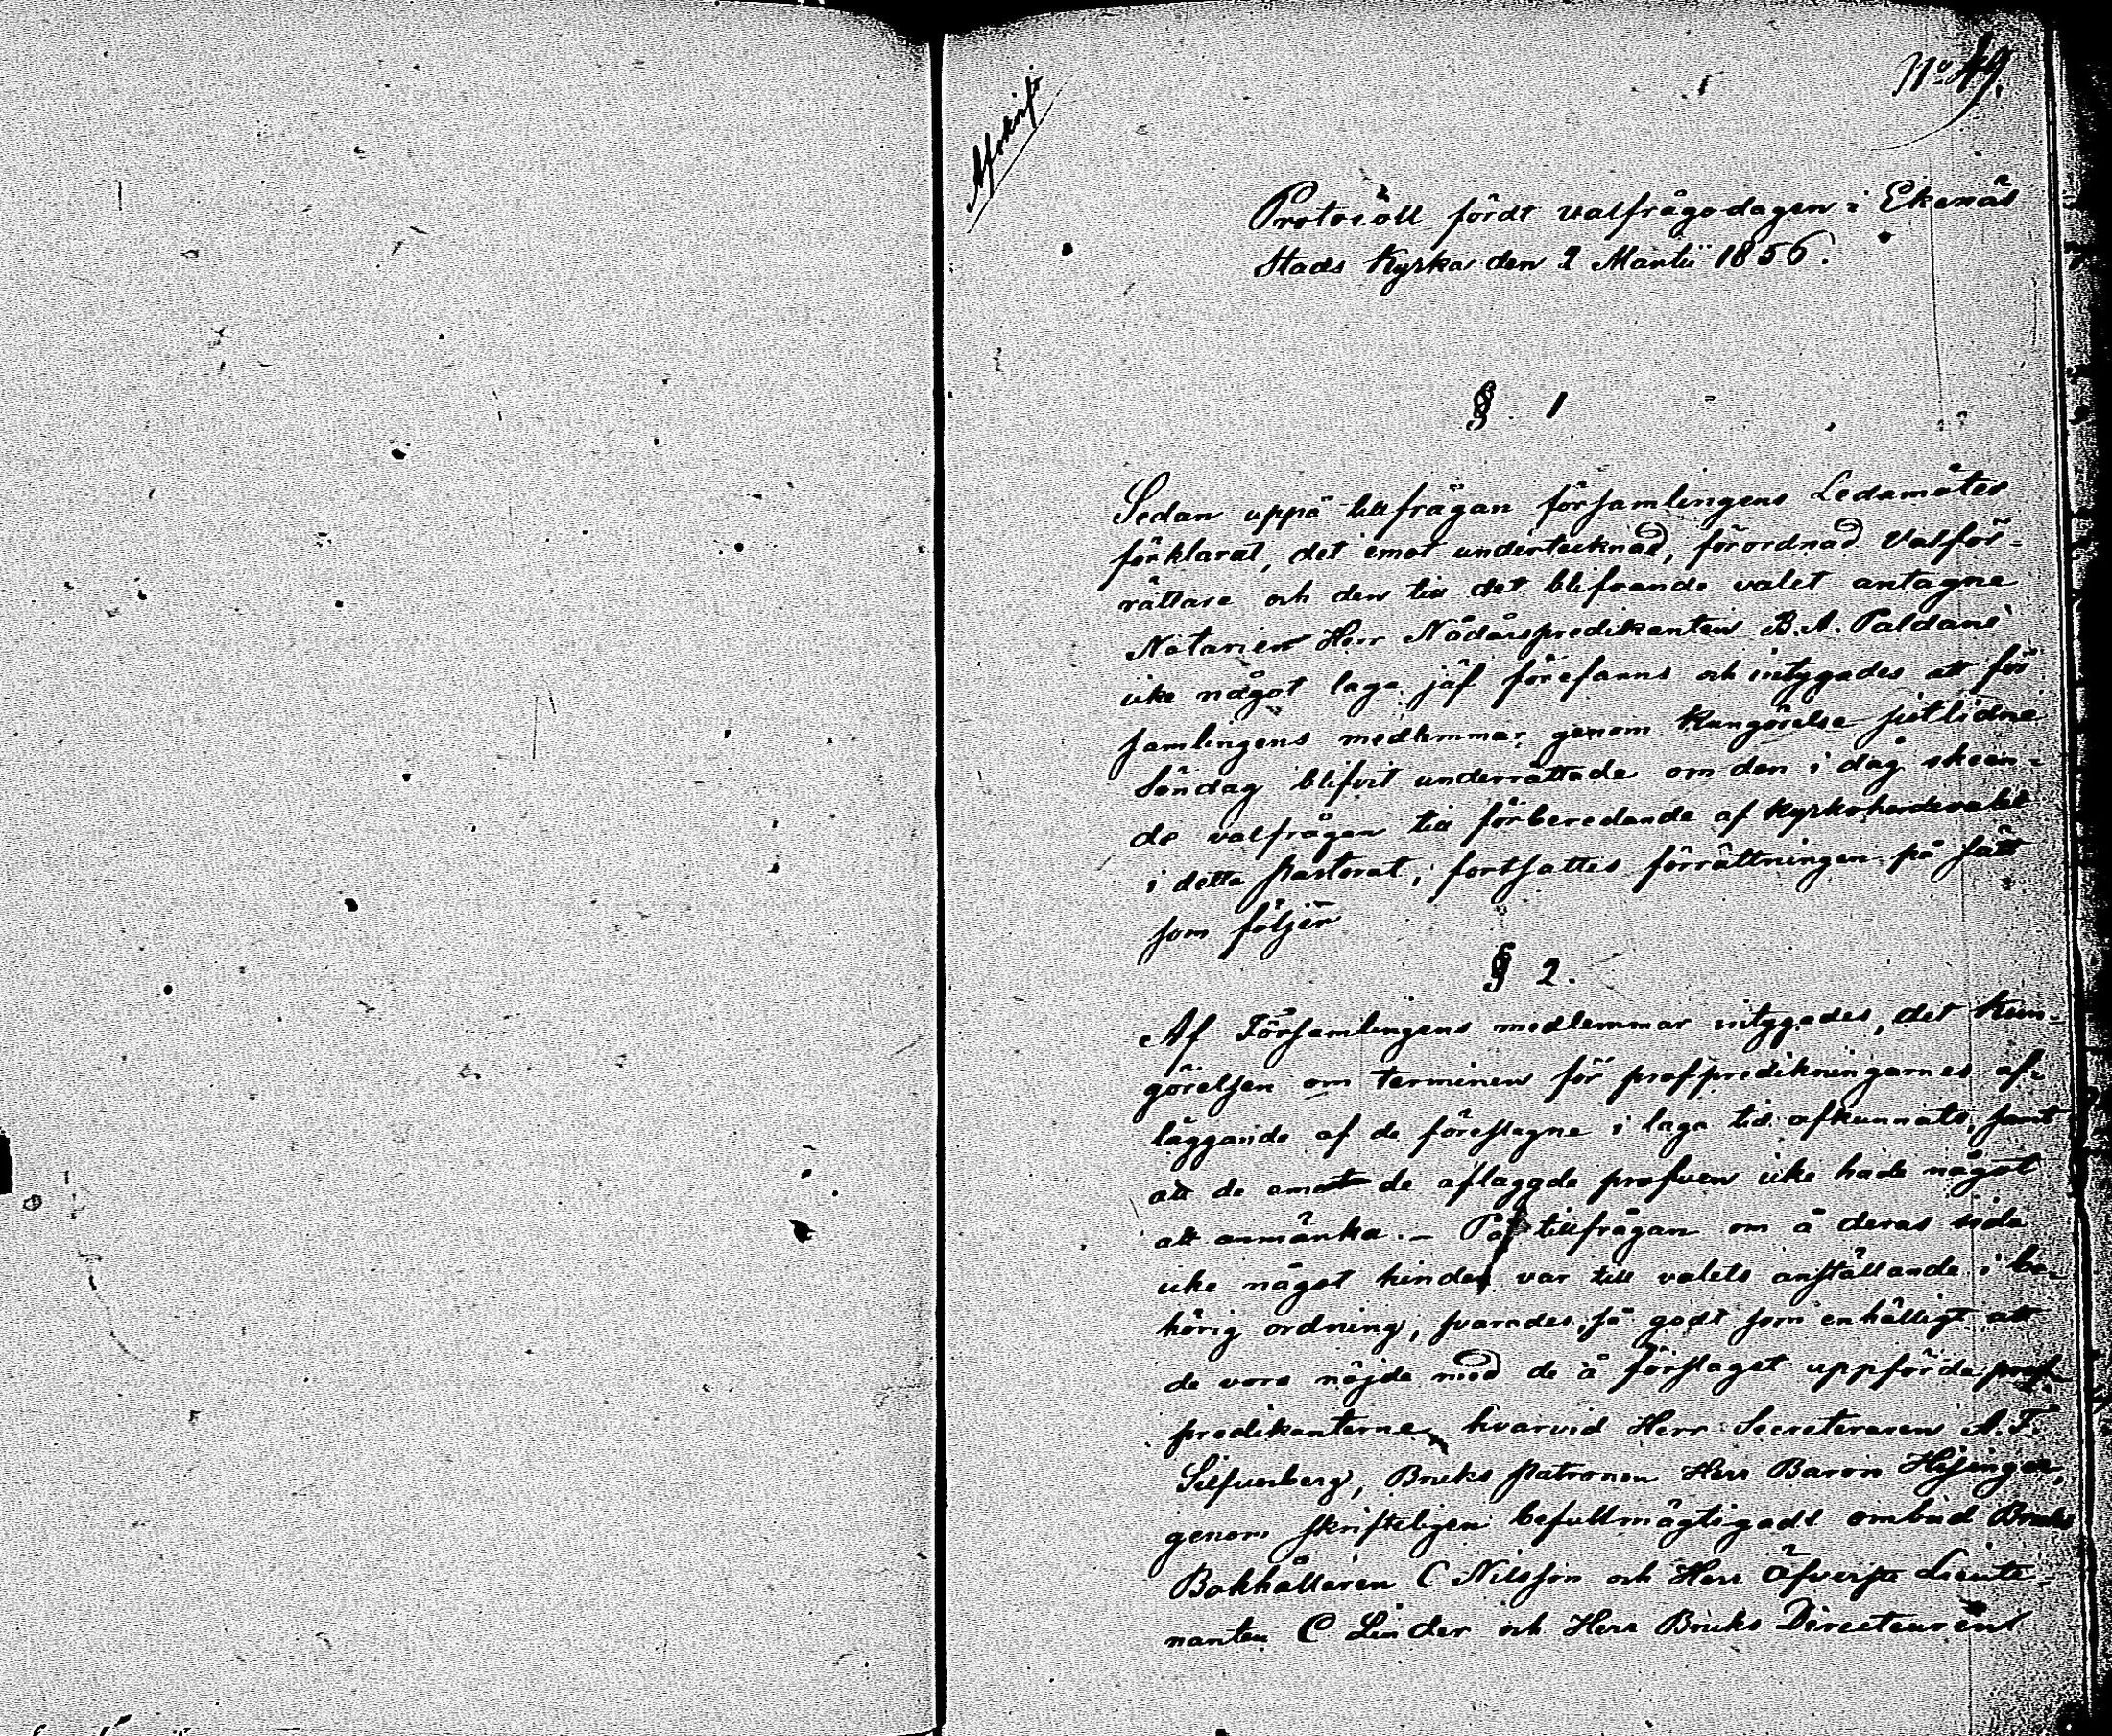 Afskrift
No 49.
Protocoll fördt valfrågodagen i Ekenäs
Stads Kyrka den 2 Martii 1856.
§ 1
Sedan uppå tillfrågan församlingens Ledamöter
förklarat, det emot undertecknad, förordnad Valför-
rättare och den till det blifvande valet antagne
Notarien Herr Nådårspredikanten B. A. Paldani
icke något laga jäf förefanns och intygades att för
samlingens medlemmar genom Kungörelse sistlidne
Söndag blifvit underrättade om den i dag skeen-
de valfrågan till förberedande af Kyrkoherdevalet
i detta pastorat, fortsattes förrättningen på sätt
som följer
§ 2.
Af Församlingens medlemmar intygades, det Kun-
görelsen om terminen för profpredikningarnes af-
läggande af de föreslagne i laga tid afkunnats, samt
att de emot de aflaggde profven icke hade något
att anmärka. – På tillfrågan om å deras sida
icke något hinder var till valets anställande i be-
hörig ordning, svarades så godt som enhälligt att
de voro nöjde med de å förslaget uppförde prof-
predikanterne, hvarvid Herr Secreteraren A. F.
Silfverberg, Bruks Patronen Herr Baron Hisinger,
genom skrifteligen befullmägtigadt ombud Bruks
Bokhållaren C Nilsson och Herr Öfverste Lieute-
nanten C Linder och Herr Bruks Directeuren